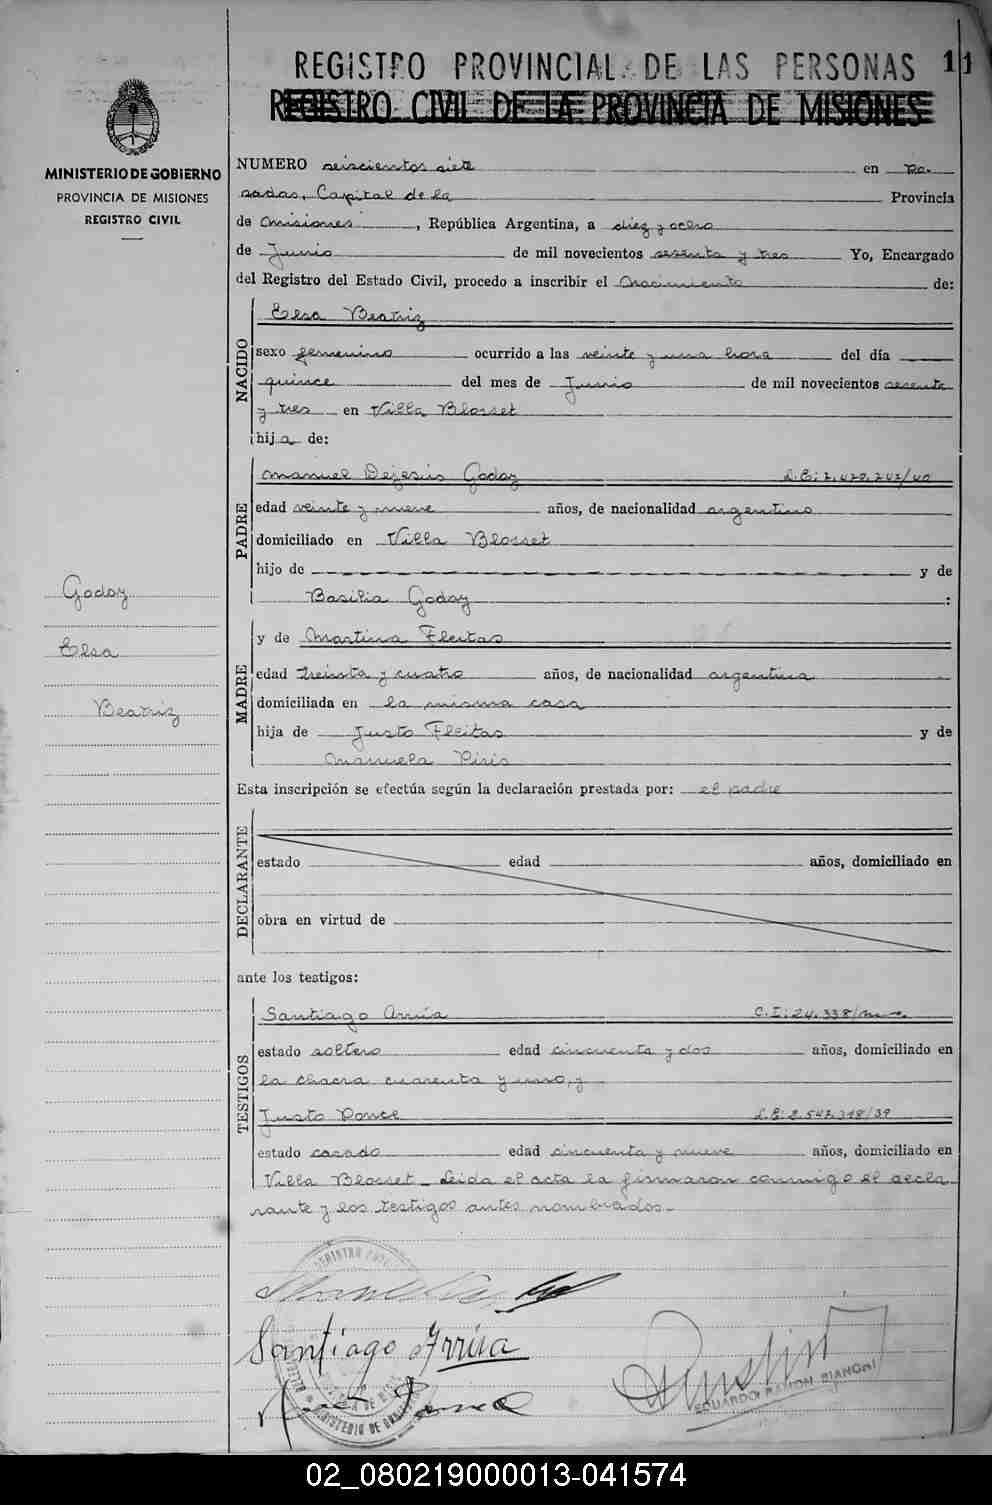 REGISTRO PROVINCIAL DE LAS PERSONAS 11
REGISTRO CIVIL DE LA PROVINCIA DE MISIONES
MINISTERIO DE GOBIERNO
PROVINCIA DE MISIONES
REGISTRO CIVIL
NUMERO seiscientos siete en Po-
sadas, Capital de la Provincia
de Misiones, República Argentina, a diez y ocho
de Junio de mil novecientos sesenta y tres Yo, Encargado
del Registro del Estado Civil, procedo a inscribir el Nacimiento de:
NACIDO
Elsa Beatriz
sexo femenino ocurrido a las veinte y una hora del día
quince del mes de Junio de mil novecientos sesenta
y tres en Villa Blosset
hija de:
PADRE
Manuel Dejesús Godoy L.E: 7.470.747/40
edad veinte y nueve años, de nacionalidad argentino
domiciliado en Villa Blosset
hijo de y de
Basilia Godoy :
MADRE
y de Martina Fleitas
edad treinta y cuatro años, de nacionalidad argentina
domiciliada en la misma casa
hija de Justo Fleitas y de
Manuela Piris
Godoy
Elsa
Beatriz
Esta inscripción se efectúa según la declaración prestada por: el padre
DECLARANTE
estado edad años, domiciliado en
obra en virtud de
ante los testigos:
TESTIGOS
Santiago Arrúa C.I: 24.338/
estado soltero edad cincuenta y dos años, domiciliado en
la chacra cuarenta y uno, y
Justo Ponce L.E: 2.547.318/39
estado casado edad cincuenta y nueve años, domiciliado en
Villa Blosset_ Leida el acta la firmaron conmigo el decla-
rante y los testigos antes nombrados.-
Santiago Arrúa
EDUARDO RAMON BIANCHI
02_080219000013-041574